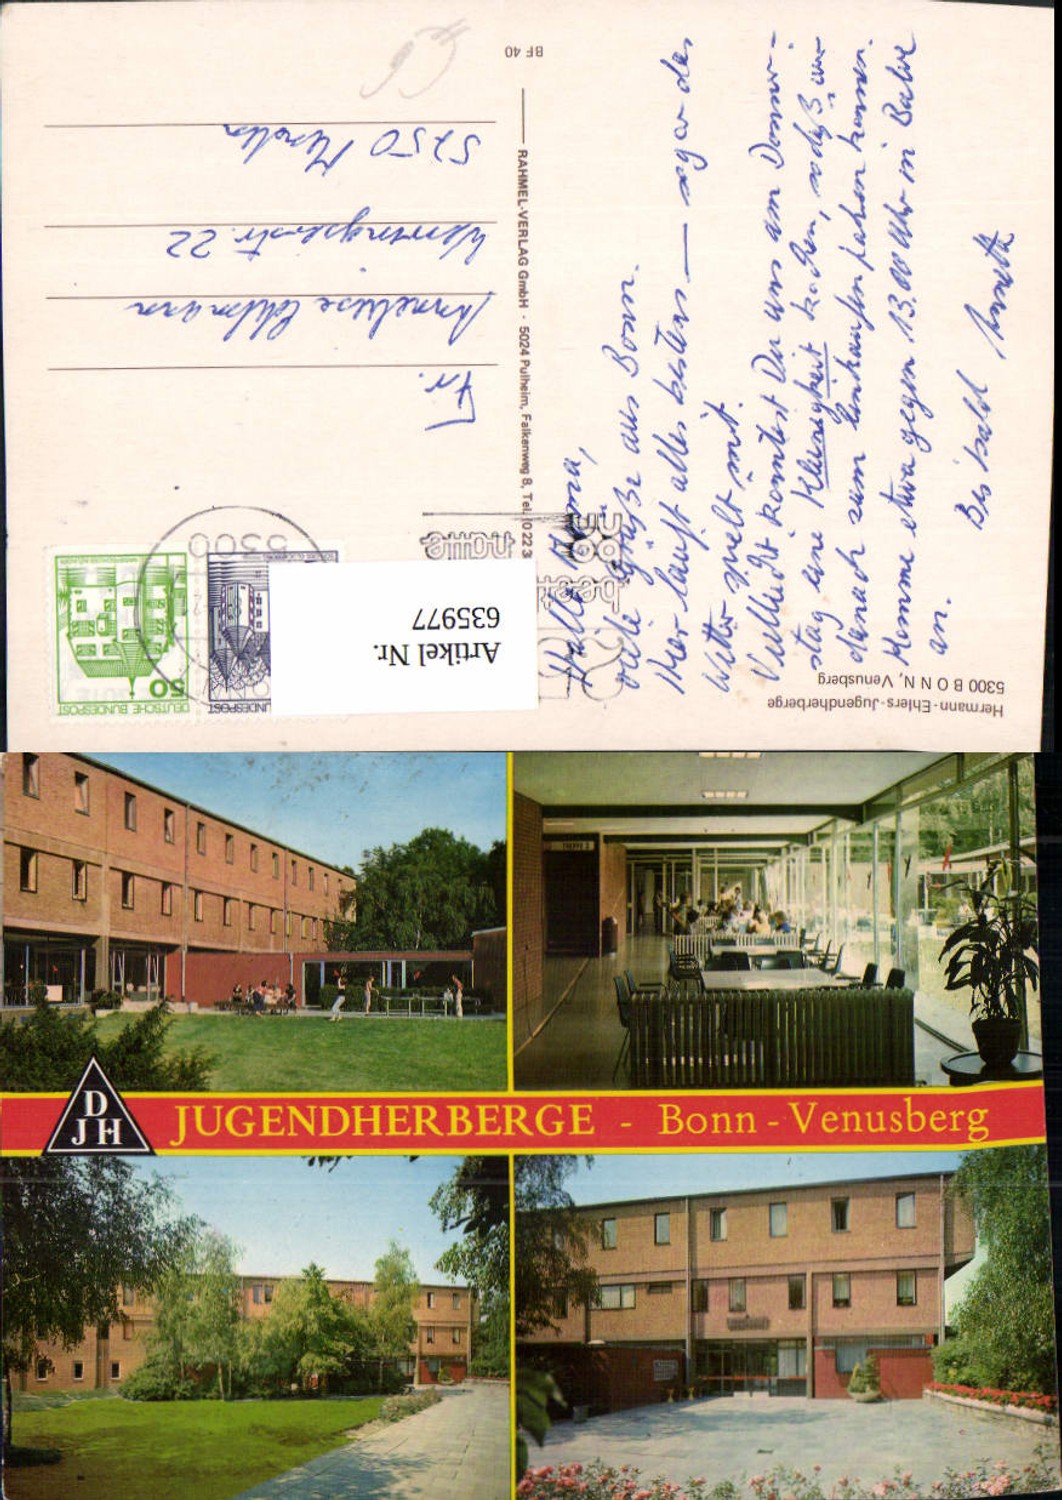 Hermann-Ehlers-Jugendherberge
5300 BONN, Venusberg
Hallo Mama,
viele Grüße aus Bonn.
Hier läuft alles bestens — sogar das
Wetter spielt mit.
Vielleicht könntest Du uns am Donners-
stag eine Kleinigkeit kochen, sodaß wir
danach zum Einkaufen fahren können.
Komme etwa gegen 13.00 Uhr in Balve
an.
Bis bald Annette
BF 40
RAHMEL-VERLAG GmbH · 5024 Pulheim, Falkenweg 8, Tel. (0 22 3
DEUTSCHE BUNDESPOST
50
BUNDESPOST
5300
BONN
Artikel Nr.
635977
Fr.
Anneliese
22
5750 Menden
DJH
JUGENDHERBERGE - Bonn - Venusberg